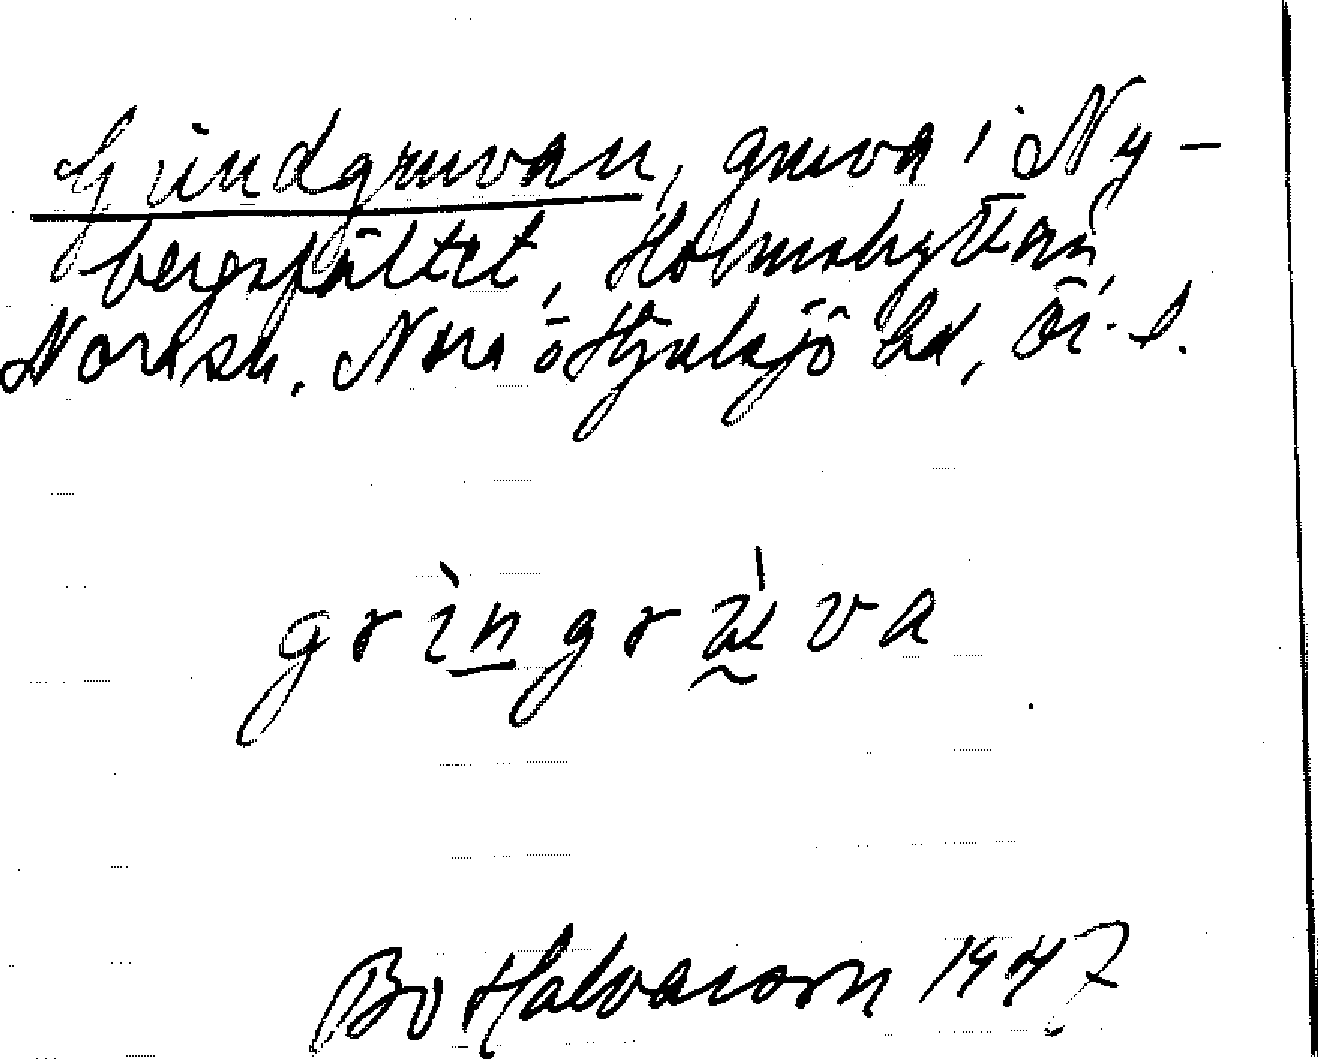 Grindgruvan, gruva i Ny-
bergsfältet, Holmshyttan,
Norasn. Nora o Hjulsjö hd, Ör. l.
grìngrùva
Bo Halvarson 1947